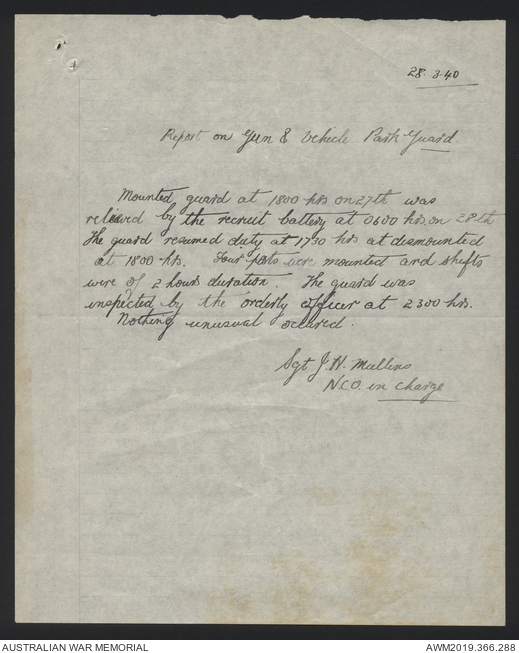 28.3.40
Report on Gun & Vehicle Park Guard
Mounted guard at 1800 hrs on 27th was
relieved by the recruit battery at 0600 hrs. on 28th
The guard resumed duty at 1730 hrs at dismounted
at 1800 hrs. Four posts were mounted and shifts
were of 2 hours duration. The guard was
inspected by the orderly officer at 2300 hrs.
Nothing unusual occured.
Sgt J.H. Mullins
N.C.O. in charge
AUSTRALIAN WAR MEMORIAL
AWM2019.366.288